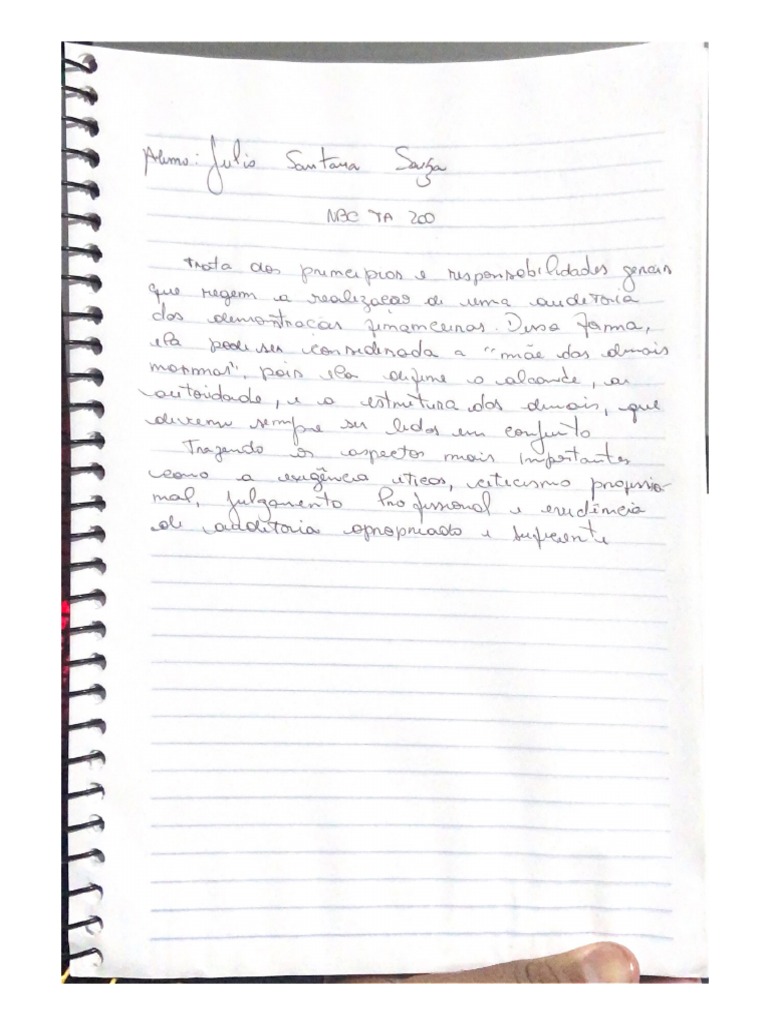 Aluno: Julio Santana Souza
NBC TA 200
Trata dos principios e responsabilidades gerais
que regem a realização de uma auditoria
das demonstracões financeiras. Dessa forma,
ela pode ser considerada a "mãe das demais
normas", pois ela define o alcance, a
autoridade, e a estrutura das demais, que
devem sempre ser lidas em conjunto
Trazendo os aspectos mais importantes
como a exigência eticas, ceticismo profissio-
nal, julgamento Profissional e evidência
de auditoria apropriada e suficiente